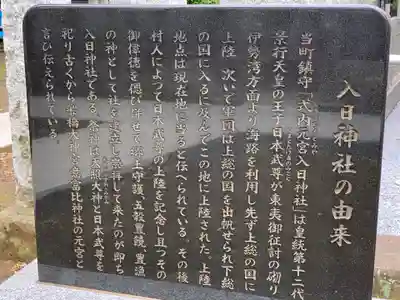 入日神社の由来
当町鎮守「式内元宮入日神社」は皇統第十二代
景行天皇の王子日本武尊が東夷御征討の砌り
伊勢湾方面より海路を利用し先ず上総の国に
上陸 次いで軍団は上総の国を出帆せられ下総
の国に入るに及んでこの地に上陸された。上陸
地点は現在地に当ると伝へられている。その後
村人によって日本武尊の上陸を記念し且つその
御偉徳を偲び併せて郷土守護、五穀豊饒、豊漁
の神として社を建立し崇拝して来たのが即ち
入日神社である。祭神は天照大神と日本武尊を
祀り古くから船橋大神宮意富比神社の元宮と
言ひ伝えられている。